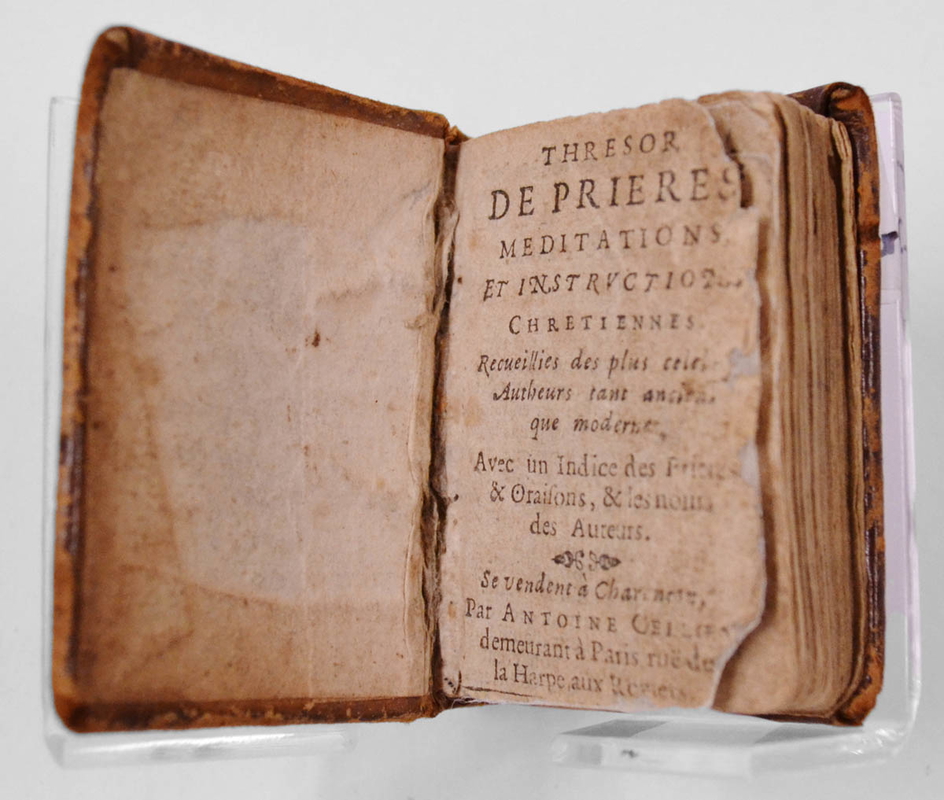 THRESOR
DE PRIERES
MEDITATIONS
ET INSTRVCTION
CHRETIENNES.
Recueillies des plus celeb
Autheurs tant anciens
que modernes,
Avec un Indice des Prieres
& Oraiſons, & les noms
des Auteurs.
Se vendent à Charenton,
Par ANTOINE CELLIER
demeurant à Paris ruë de
la Harpe, aux